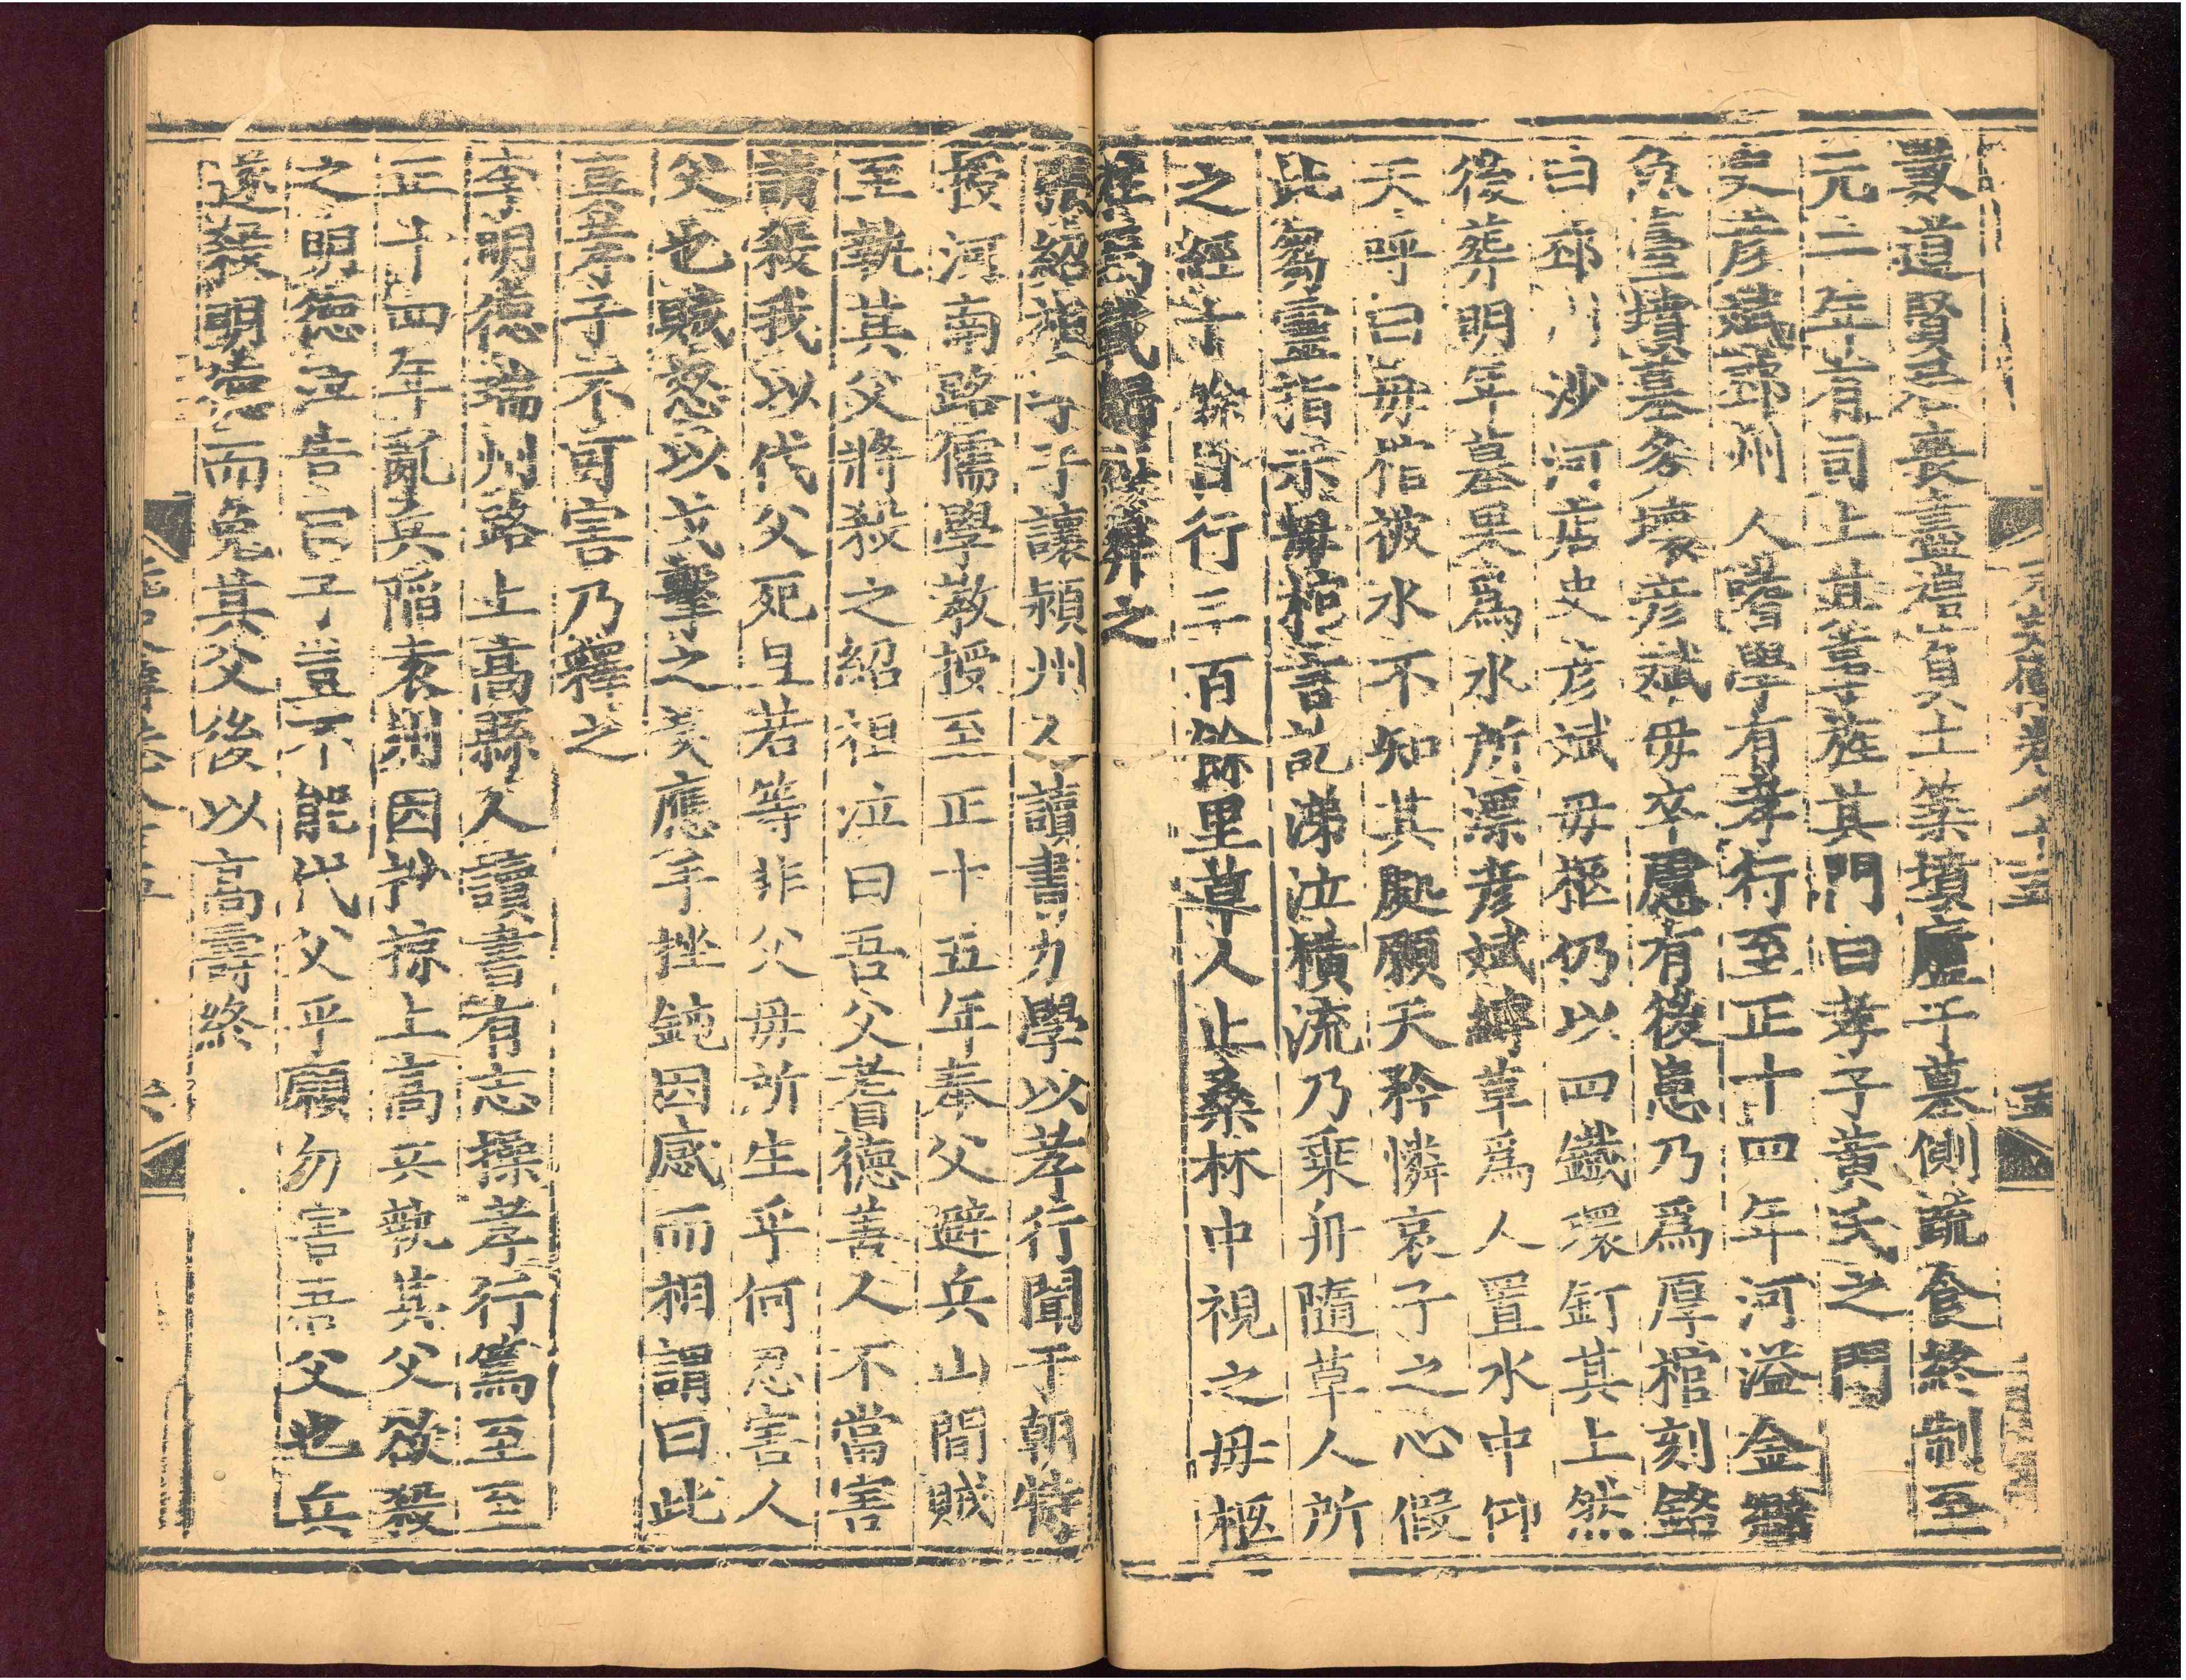 元史傳卷八十五 五
數道賢居喪盡禮負土築墳廬于墓側蔬食終制至
元二年有司上其事旌其門曰孝子黃氏之門
史彥斌邳州人嗜學有孝行至正十四年河溢金鄉
魚臺墳墓多壞彥斌母卒慮有後患乃爲厚棺刻銘
曰邳川沙河店史彥斌母柩仍以四鐵環釘其上然
後葬明年墓果爲水所漂彥斌縛草爲人置水中仰
天呼曰母棺被水不知其處願天矜憐哀子之心假
此芻靈指示母棺言訖涕泣橫流乃乘舟隨草人所
之經十餘日行三百餘里草人止桑林中視之母柩
在焉載歸復葬之
張紹祖字子讓潁州人讀書力學以孝行聞于朝特
授河南路儒學敎授至正十五年奉父避兵山間賊
至執其父將殺之紹祖泣曰吾父耆德善人不當害
請殺我以代父死且若等非父母所生乎何忍害人
父也賊怒以戈擊之戈應手挫鈍因感而相謂曰此
眞孝子不可害乃釋之
李明德瑞州路上高縣人讀書有志操孝行篤至至
正十四年亂兵陷袁州因抄掠上高兵執其父欲殺
之明德泣告曰子豈不能代父乎願勿害吾父也兵
遂殺明德而免其父後以高壽終